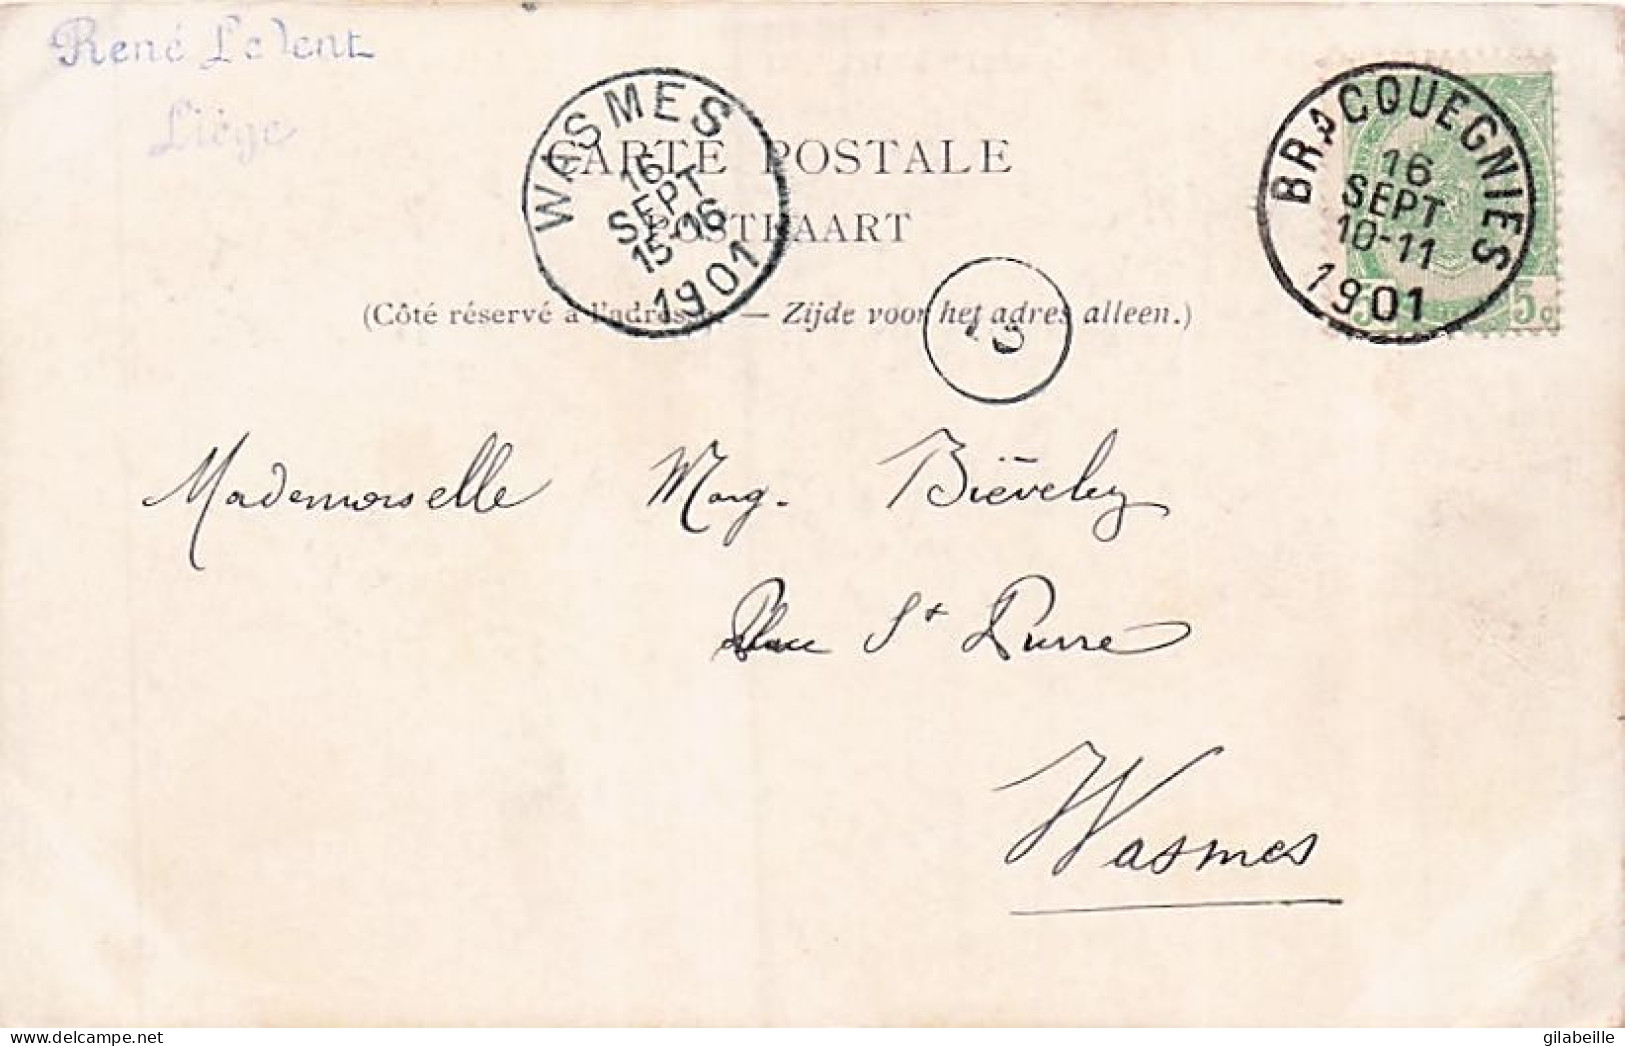 René
Liège
WASMES
16
SEPT
15-16
1901
BRACQUEGNIES
16
SEPT
10-11
1901
5c
CARTE POSTALE
POSTKAART
(Côté réservé à l'adresse. — Zijde voor het adres alleen.)
Mademoiselle Marg.
St Pierre
Wasmes
gilabeille